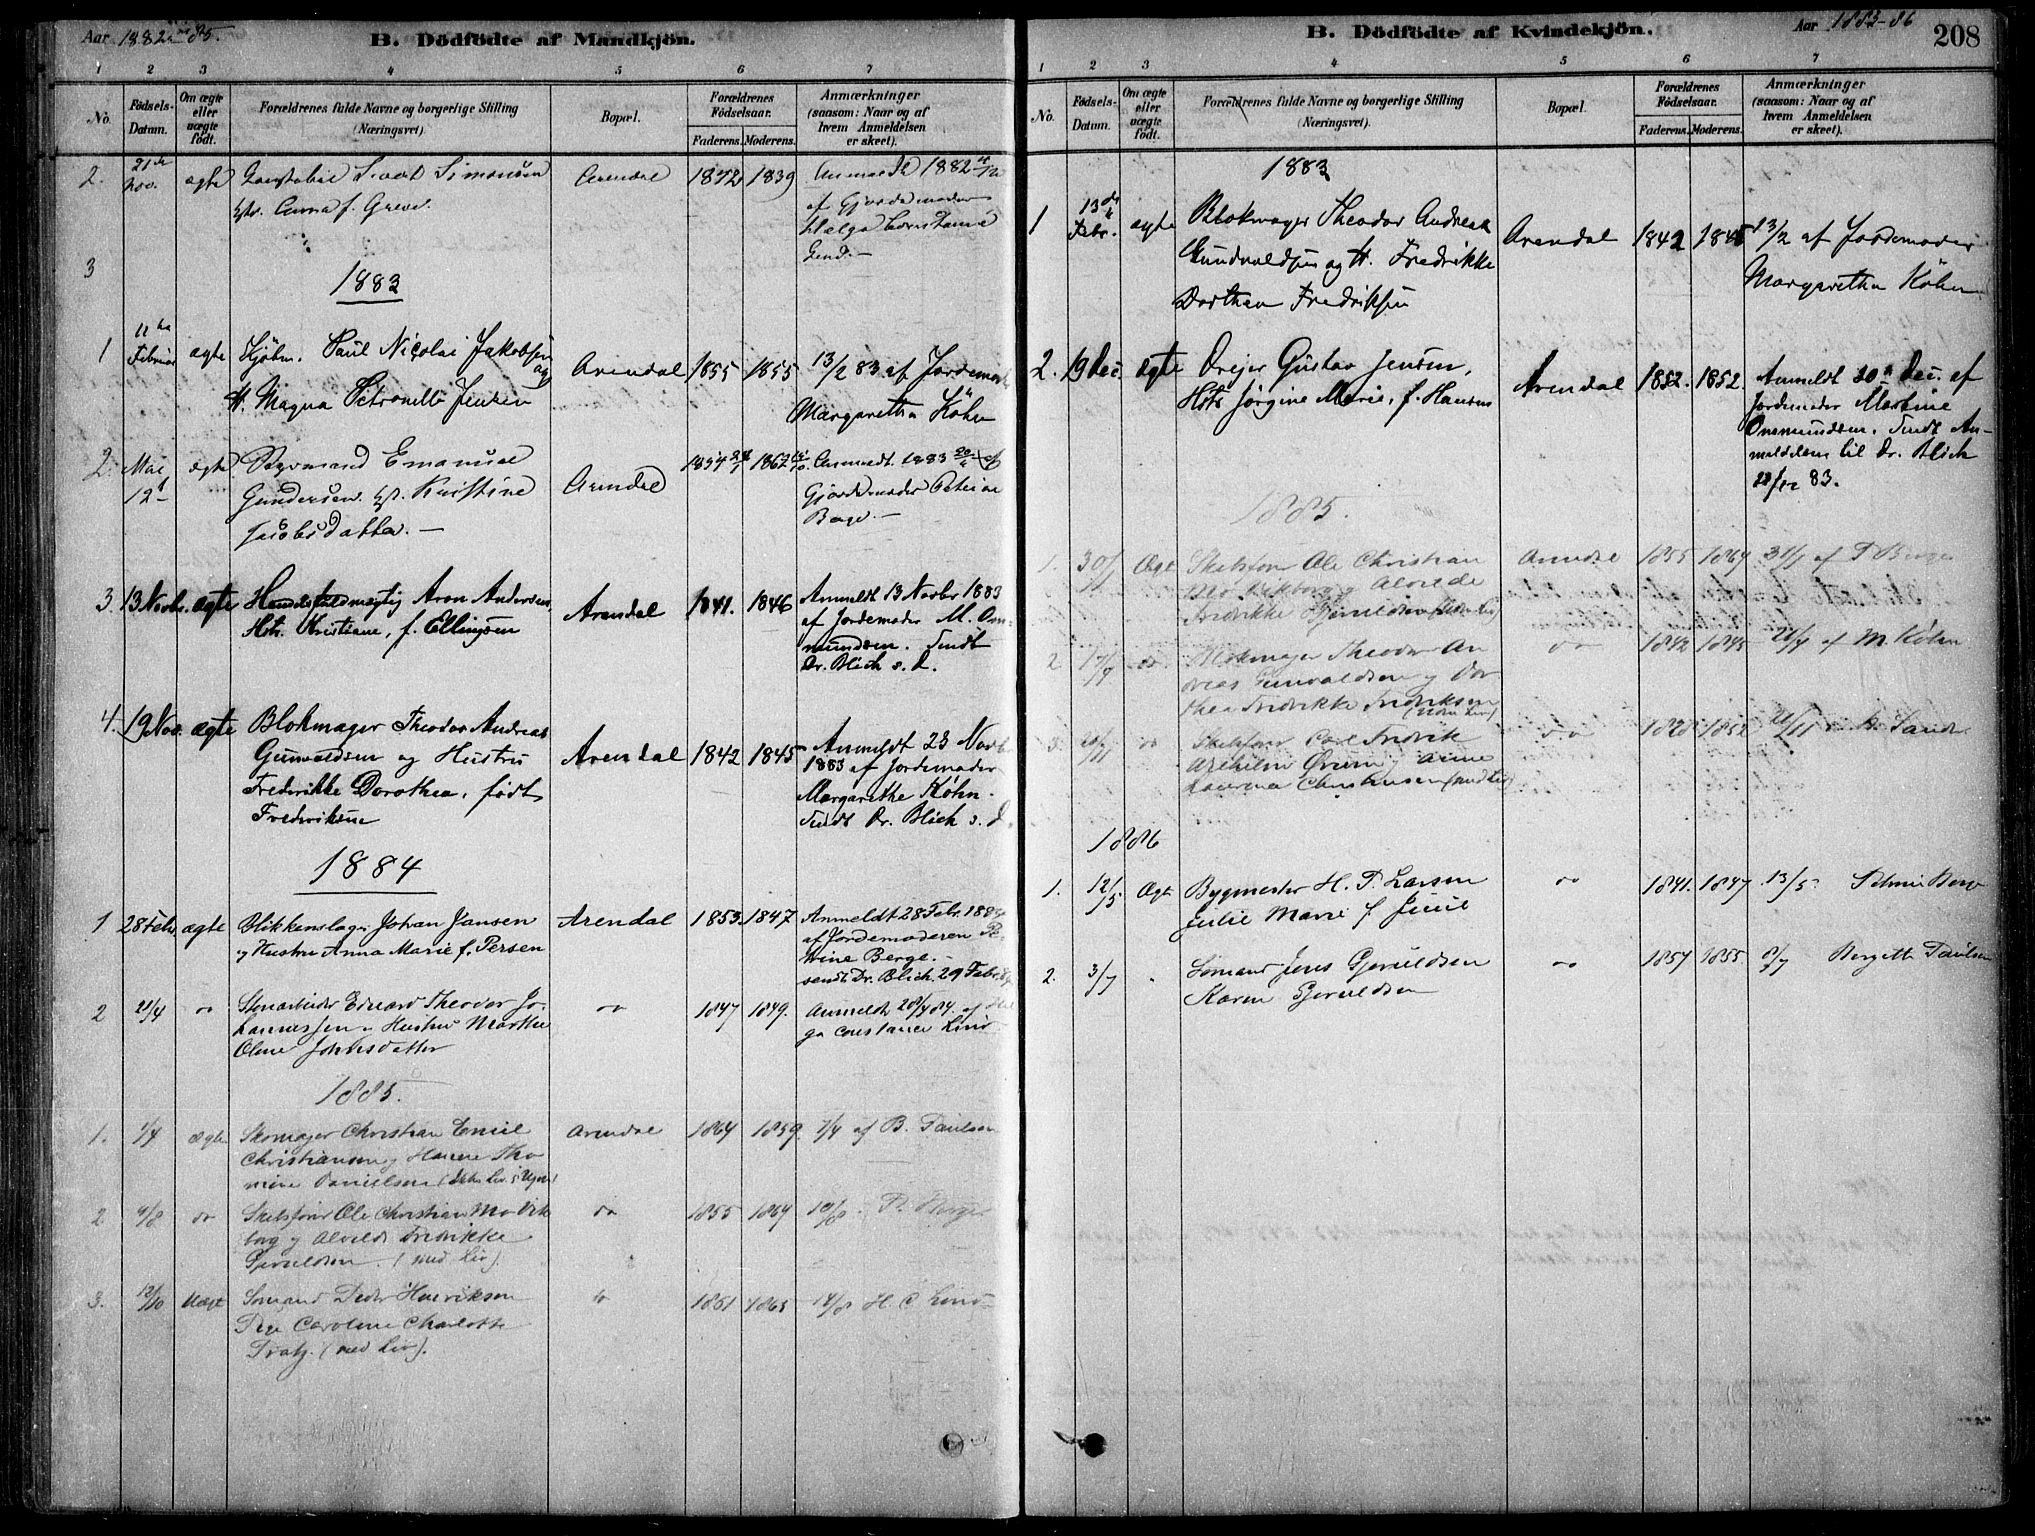 Aar 1882-85.
B. Dödfödte af Mandkjön.
1 2 3 4 5 6 7
No.
Födsels-Datum.
Om ægte eller uægte födt.
Forældrenes fulde Navne og borgerlige Stilling (Næringsvei).
Bopæl.
Forældrenes Födselsaar.
Faderens. Moderens.
Anmærkninger (saasom: Naar og af hvem Anmeldelsen er skeet).
2. 21de Nov. ægte Simonsen Arendal 1839
Anna f. Greve. af Gjordemoder
Helga
Lind.
3
1883
1 11te Februar ægte Kjöbm. Paul Nicolai Jakobsen og Arendal 1855 1855 13/2 83 af Jordemoder
H. Magna Petronelle Jensen Margaretha Köhn
2. Mai 12 ægte Emanuel Arendal Anmeldt 1883
Gundersen Kristine Gjordemoder
Jacobsdatter. Berge.
3. 13 Novbr. ægte Handelsfuldmægtig Aron Andersen, Arendal 1841. 1846 Anmeldt 13 Novbr 1883
Hstr. Kristiane, f. Ellingsen af Jordemoder M. Om-
mundsen. Sendt
Dr. Blich s. d.
4. 19 Nov. ægte Blokmager Theodor Andreas Arendal 1842 1845 Anmeldt 23 Novbr
Gunvaldsen og Hustru 1883 af Jordemoder
Frederikke Dorothea, født Margarethe Köhn.
Frederiksen Sendt Dr. Blich s. d.
1884
1 28 Febr. ægte Blikkenslager Johan Jansen Arendal 1853. 1847 Anmeldt 28 Febr. 1884
og Hustru Anna Marie f. Persen af Jordemoderen Pe-
trine Berge.
sendt Dr. Blich. 29 Febr.
2 21/4 do Eduard Theodor Jo- do 1847 1849. Anmeldt 28/4 84. af Hel-
hannessen og Hustru Marthe ga Constance Lind
Oline Johnsdatter
1885.
1. 1/4 Ægte Skomager Christian Emil Arendal 1864 1859. 2/4 af B. Paulsen
Christiansen og Hanne Tho-
mine Danielsen
2 9/8 do Skibsfører Ole Christian Mo Vik- do 1855 1864 10/8 P. Berge
borg og Alvilde Fredrikke
Gjeruldsen. (med Liv).
3. 12/10 Uægt Sømand Peder Henriksen do 1861 1863 14/8 H. C. Lind
Pige Caroline Charlotte
(med Liv).
B. Dödfödte af Kvindekjön.
Aar 1883-86
208
1 2 3 4 5 6 7
No.
Födsels-Datum.
Om ægte eller uægte födt.
Forældrenes fulde Navne og borgerlige Stilling (Næringsvei).
Bopæl.
Forældrenes Födselsaar.
Faderens. Moderens.
Anmærkninger (saasom: Naar og af hvem Anmeldelsen er skeet).
1883
1 13de Febr. ægte Blokmager Theodor Andreas Arendal 1842 1845 13/2 af Jordemoder
Gundvaldsen og H. Fredrikke Margaretha Köhn
Dorthea Fredriksen
2. 19 Dec. Ægte Drejer Gustav Jensen, Arendal 1852. 1852. Anmeldt 20 Dec. af
Hstr. Jørgine Marie, f. Hansen Jordemoder Martine
Ommundsen. Sendt An-
meldelsen til Dr. Blich
83.
1885.
1. 30/1 Ægt Skibsfører Ole Christian Arendal 1855 1864 31/1 af P. Berge
Mo Vikborg og Alvilde
Fredrikke Gjeruldsen
2 17/9 do Blokmager Theodor An- do 1842 1845 af M. Köhn
dreas Gunvaldsen og Dor-
thea Fredrikke Fredriksen
3. do Skibsfører Carl Fredrik do 1852 Lind
Wilhelm og Anne
Laurena Christensen
1886
1. 12/5 Ægt Bygmester H. P. Larsen do 1841. 1847. 13/5 Petrine Berge
Julie Marie f. Juul
2. 3/7 " Sømand Jens Gjeruldsen do 1857 1855. 8/7 Bergette Paulsen
Karen Gjeruldsen